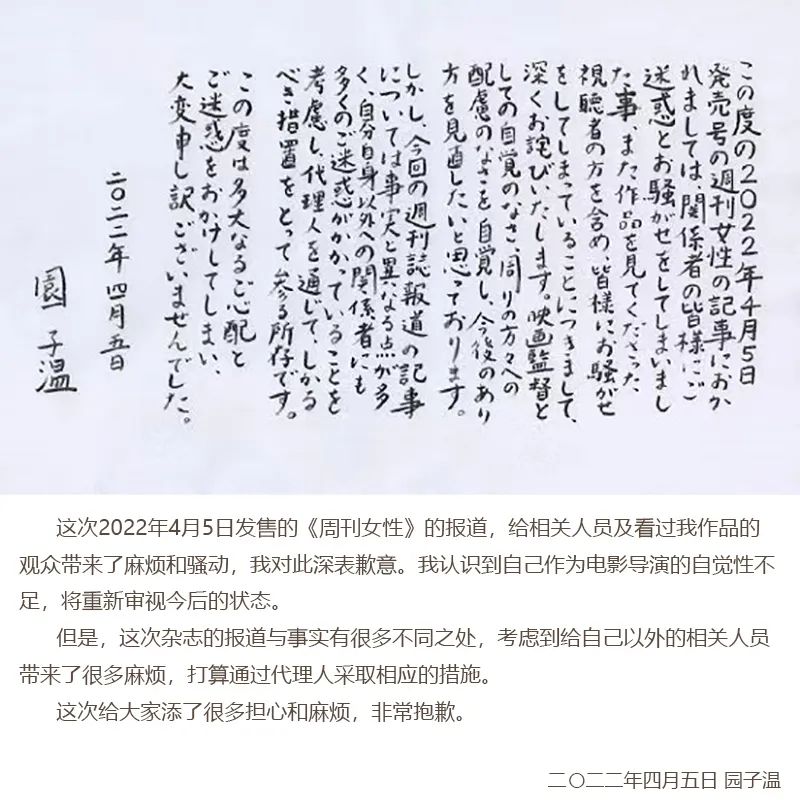 この度の2022年4月5日
発売号の週刊女性の記事におか
れましては、関係者の皆様にご
迷惑とお騒がせをしてしまいまし
た事、また作品を見てくださった、
視聴者の方を含め、皆様にお騒がせ
をしてしまっていることにつきまして、
深くお詫びいたします。映画監督と
しての自覚のなさ、周りの方々への
配慮のなさを自覚し、今後のあり
方を見直したいと思っております。
しかし、今回の週刊誌報道の記事
については事実と異なる点が多
く、自分自身以外への関係者にも
多くのご迷惑がかかっていることを
考慮し、代理人を通じて、しかる
べき措置をとって参る所存です。
この度は多大なるご心配と
ご迷惑をおかけしてしまい、
大変申し訳ございませんでした。
二〇二二年 四月五日
園 子温
这次2022年4月5日发售的《周刊女性》的报道，给相关人员及看过我作品的
观众带来了麻烦和骚动，我对此深表歉意。我认识到自己作为电影导演的自觉性不
足，将重新审视今后的状态。
但是，这次杂志的报道与事实有很多不同之处，考虑到给自己以外的相关人员
带来了很多麻烦，打算通过代理人采取相应的措施。
这次给大家添了很多担心和麻烦，非常抱歉。
二〇二二年四月五日 园子温